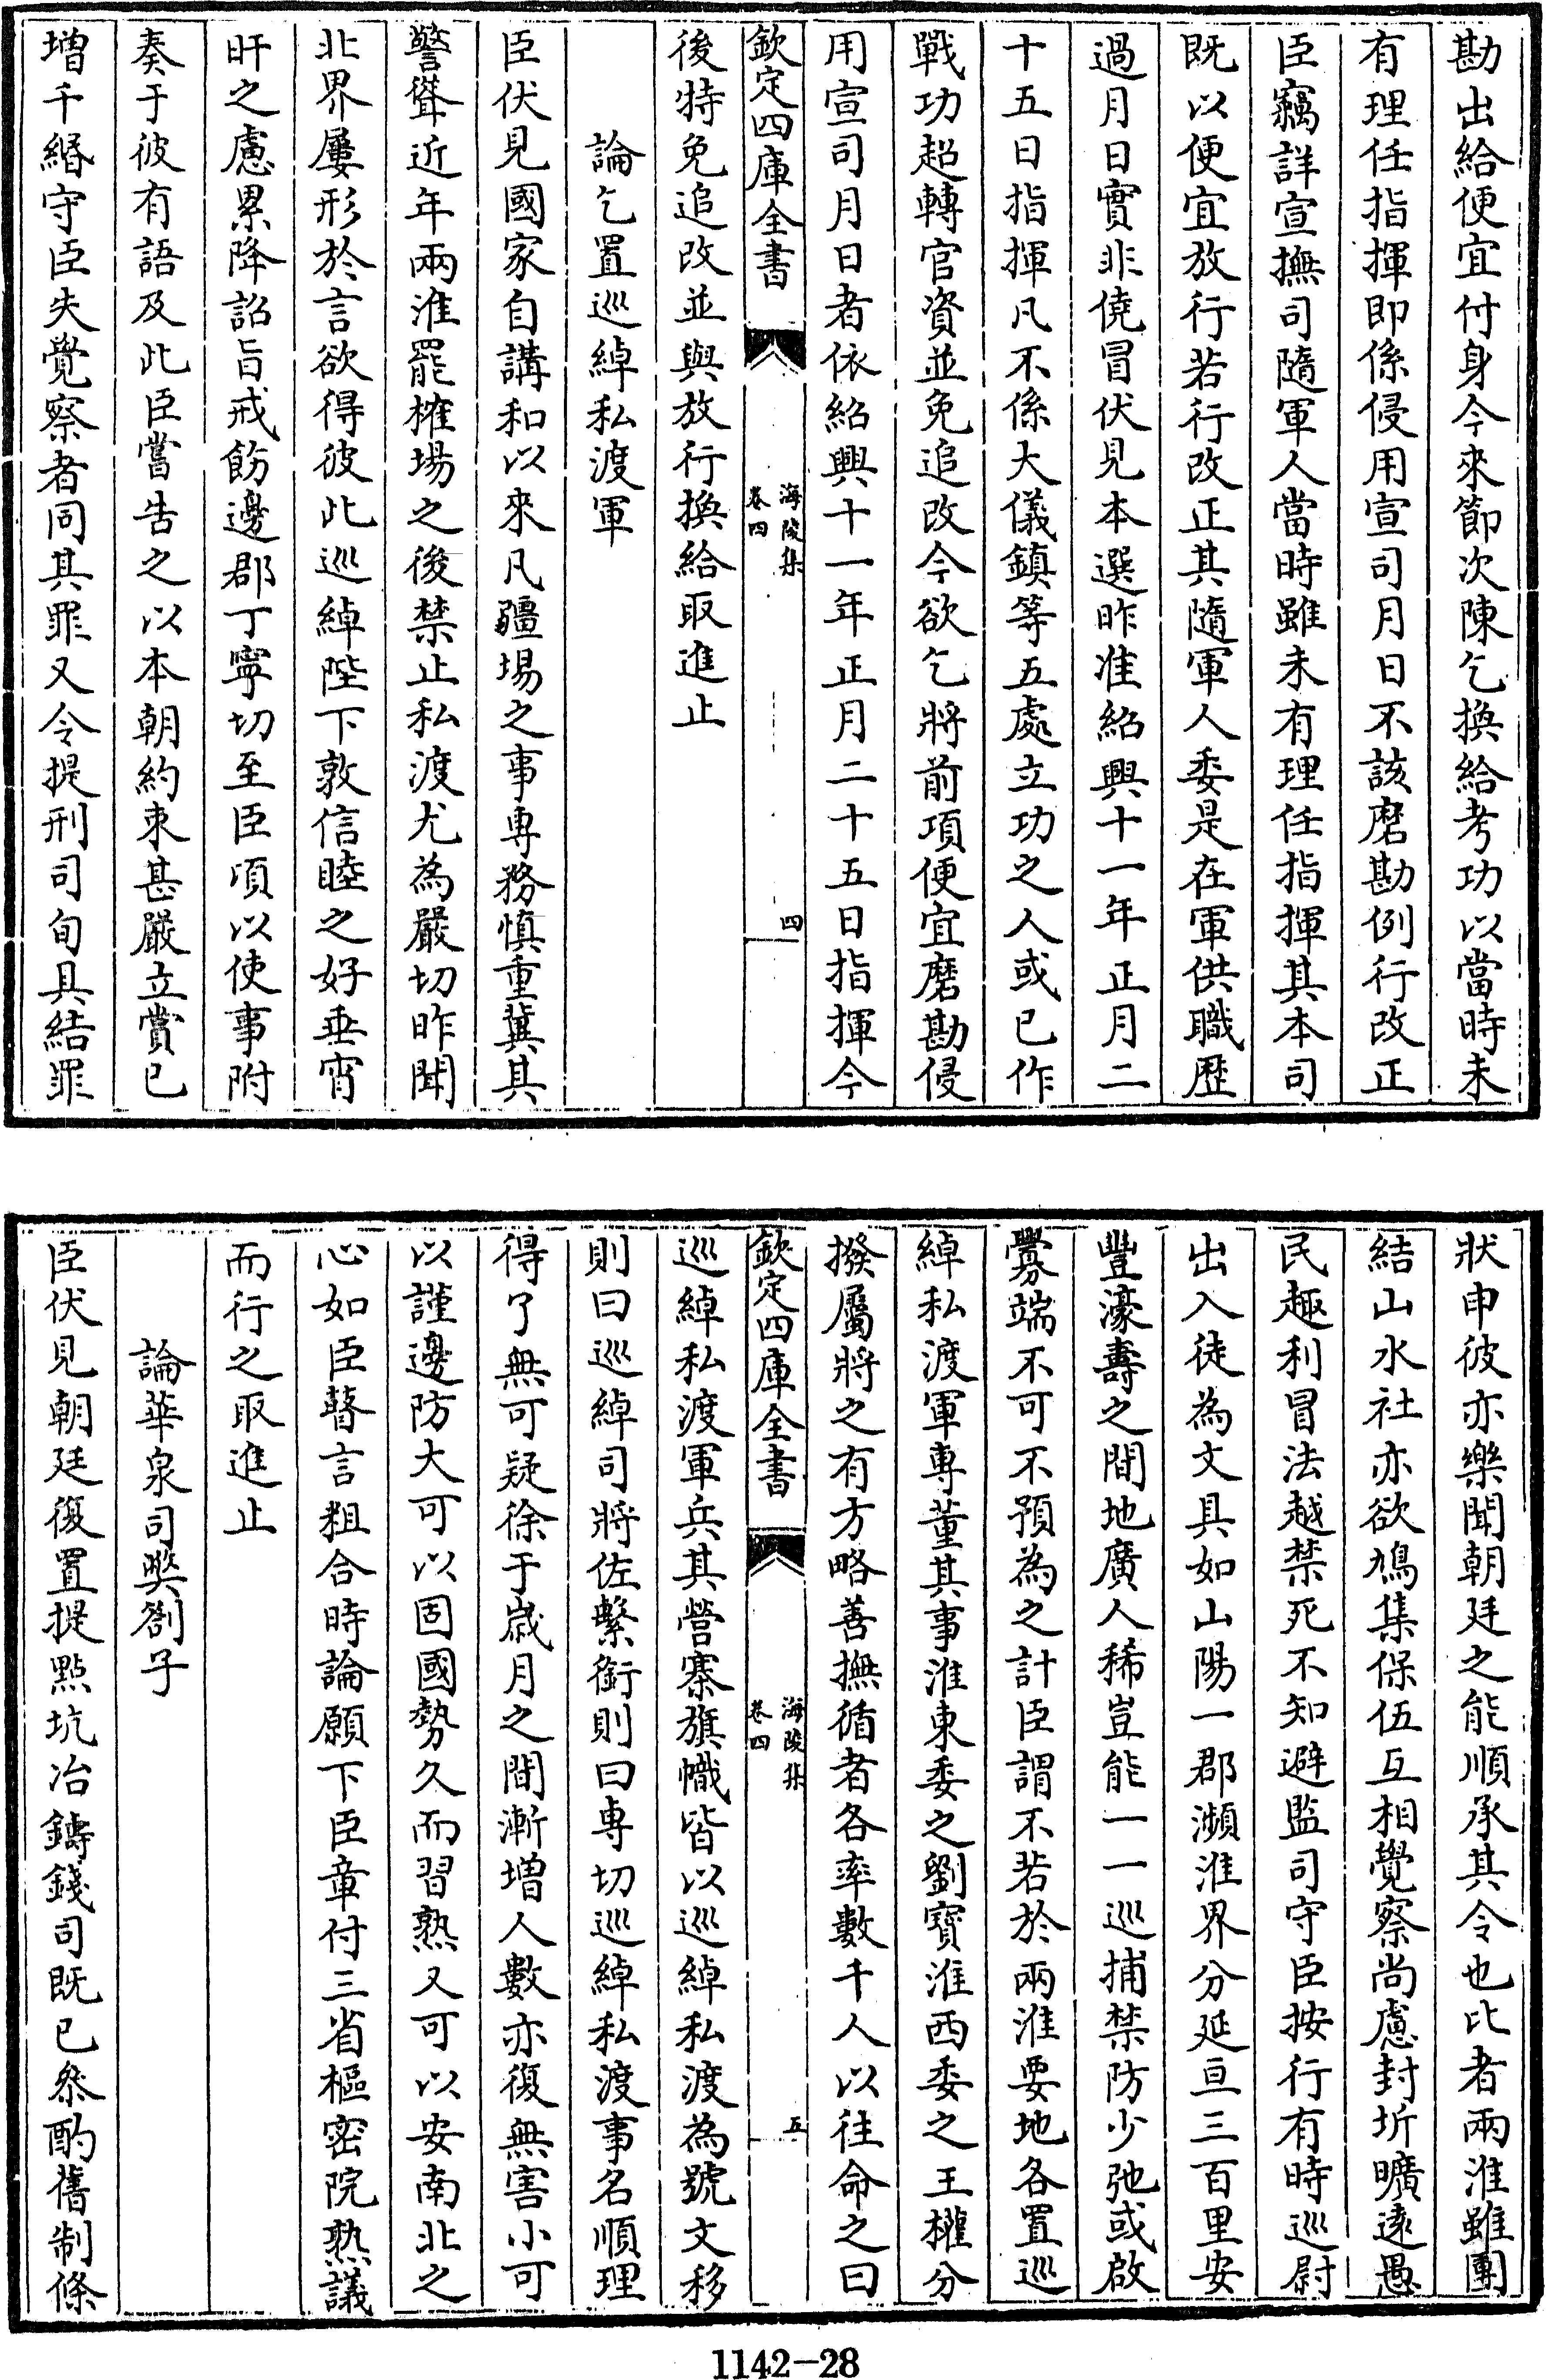 勘出給便宜付身今來節次陳乞換給考功以當時未
有理任指揮即係侵用宣司月日不該磨勘例行改正
臣竊詳宣撫司隨軍人當時雖未有理任指揮其本司
既以便宜放行若行改正其隨軍人委是在軍供職歷
過月日實非僥冒伏見本選昨准紹興十一年正月二
十五日指揮凡不係大儀鎮等五處立功之人或已作
戰功超轉官資並免追改今欲乞將前項便宜磨勘侵
用宣司月日者依紹興十一年正月二十五日指揮今
欽定四庫全書
海陵集
卷四
四
後特免追改並與放行換給取進止
論乞置巡綽私渡軍
臣伏見國家自講和以來凡疆場之事專務慎重冀其
警聳近年兩淮罷榷場之後禁止私渡尤為嚴切昨聞
北界屢形於言欲得彼此巡綽陛下敦信睦之好垂宵
旰之慮累降詔旨戒飭邊郡丁寧切至臣頃以使事附
奏于彼有語及此臣當告之以本朝約束甚嚴立賞已
增千緡守臣失覺察者同其罪又令提刑司旬具結罪
狀申彼亦樂聞朝廷之能順承其令也比者兩淮雖團
結山水社亦欲鳩集保伍互相覺察尚慮封圻曠遠愚
民趣利冒法越禁死不知避監司守臣按行有時巡尉
出入徒為文具如山陽一郡瀕淮界分延亘三百里安
豐濠壽之間地廣人稀豈能一一巡捕禁防少弛或啟
釁端不可不預為之計臣謂不若於兩淮要地各置巡
綽私渡軍專董其事淮東委之劉寶淮西委之王權分
撥屬將之有方略善撫循者各率數千人以往命之曰
欽定四庫全書
海陵集
卷四
五
巡綽私渡軍兵其營寨旗幟皆以巡綽私渡為號文移
則曰巡綽司將佐繫銜則曰專切巡綽私渡事名順理
得了無可疑徐于歲月之間漸增人數亦復無害小可
以謹邊防大可以固國勢久而習熟又可以安南北之
心如臣瞽言粗合時論願下臣章付三省樞密院熟議
而行之取進止
論華泉司獘劄子
臣伏見朝廷復置提點坑冶鑄錢司既已叅酌舊制條
1142-28